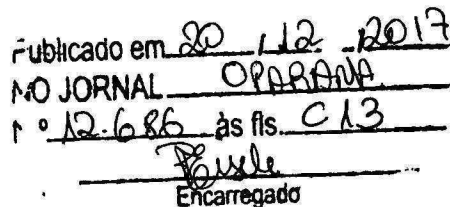 Publicado em 20 / 12 / 2017
NO JORNAL OPARANÁ
Nº 12.686 às fls. C13
Encarregado